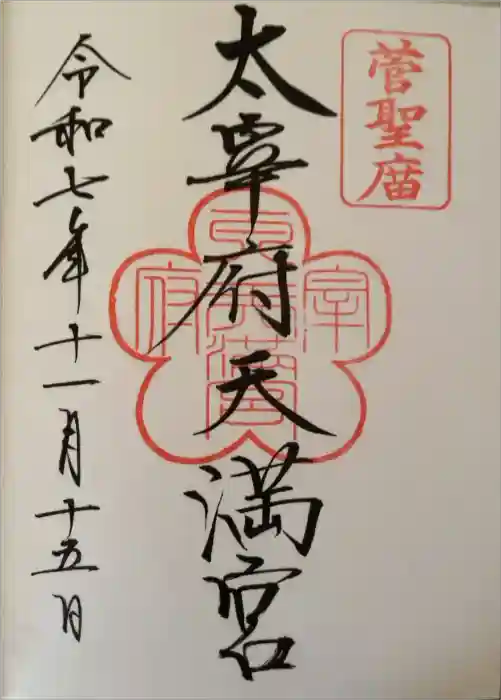 菅聖庿
太宰府天満宮
令和七年十一月十五日